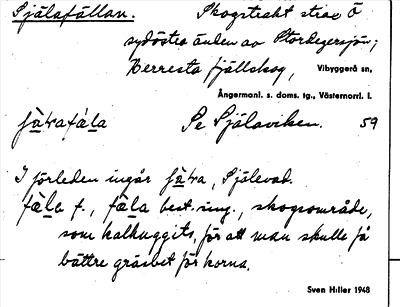 Själafällan. Skogstrakt strax Ö
sydöstra änden av Stordegersjön;
Berresta fjällskog, Vibyggerå sn,
Ångermanl. s. doms. tg., Västernorrl. l.
Se Själaviken. 59
I förleden ingår Själevad.
f., best. sing., skogsområde,
som kalhuggits, för att man skulle få
bättre gräsbet för korna.
Sven Hiller 1948